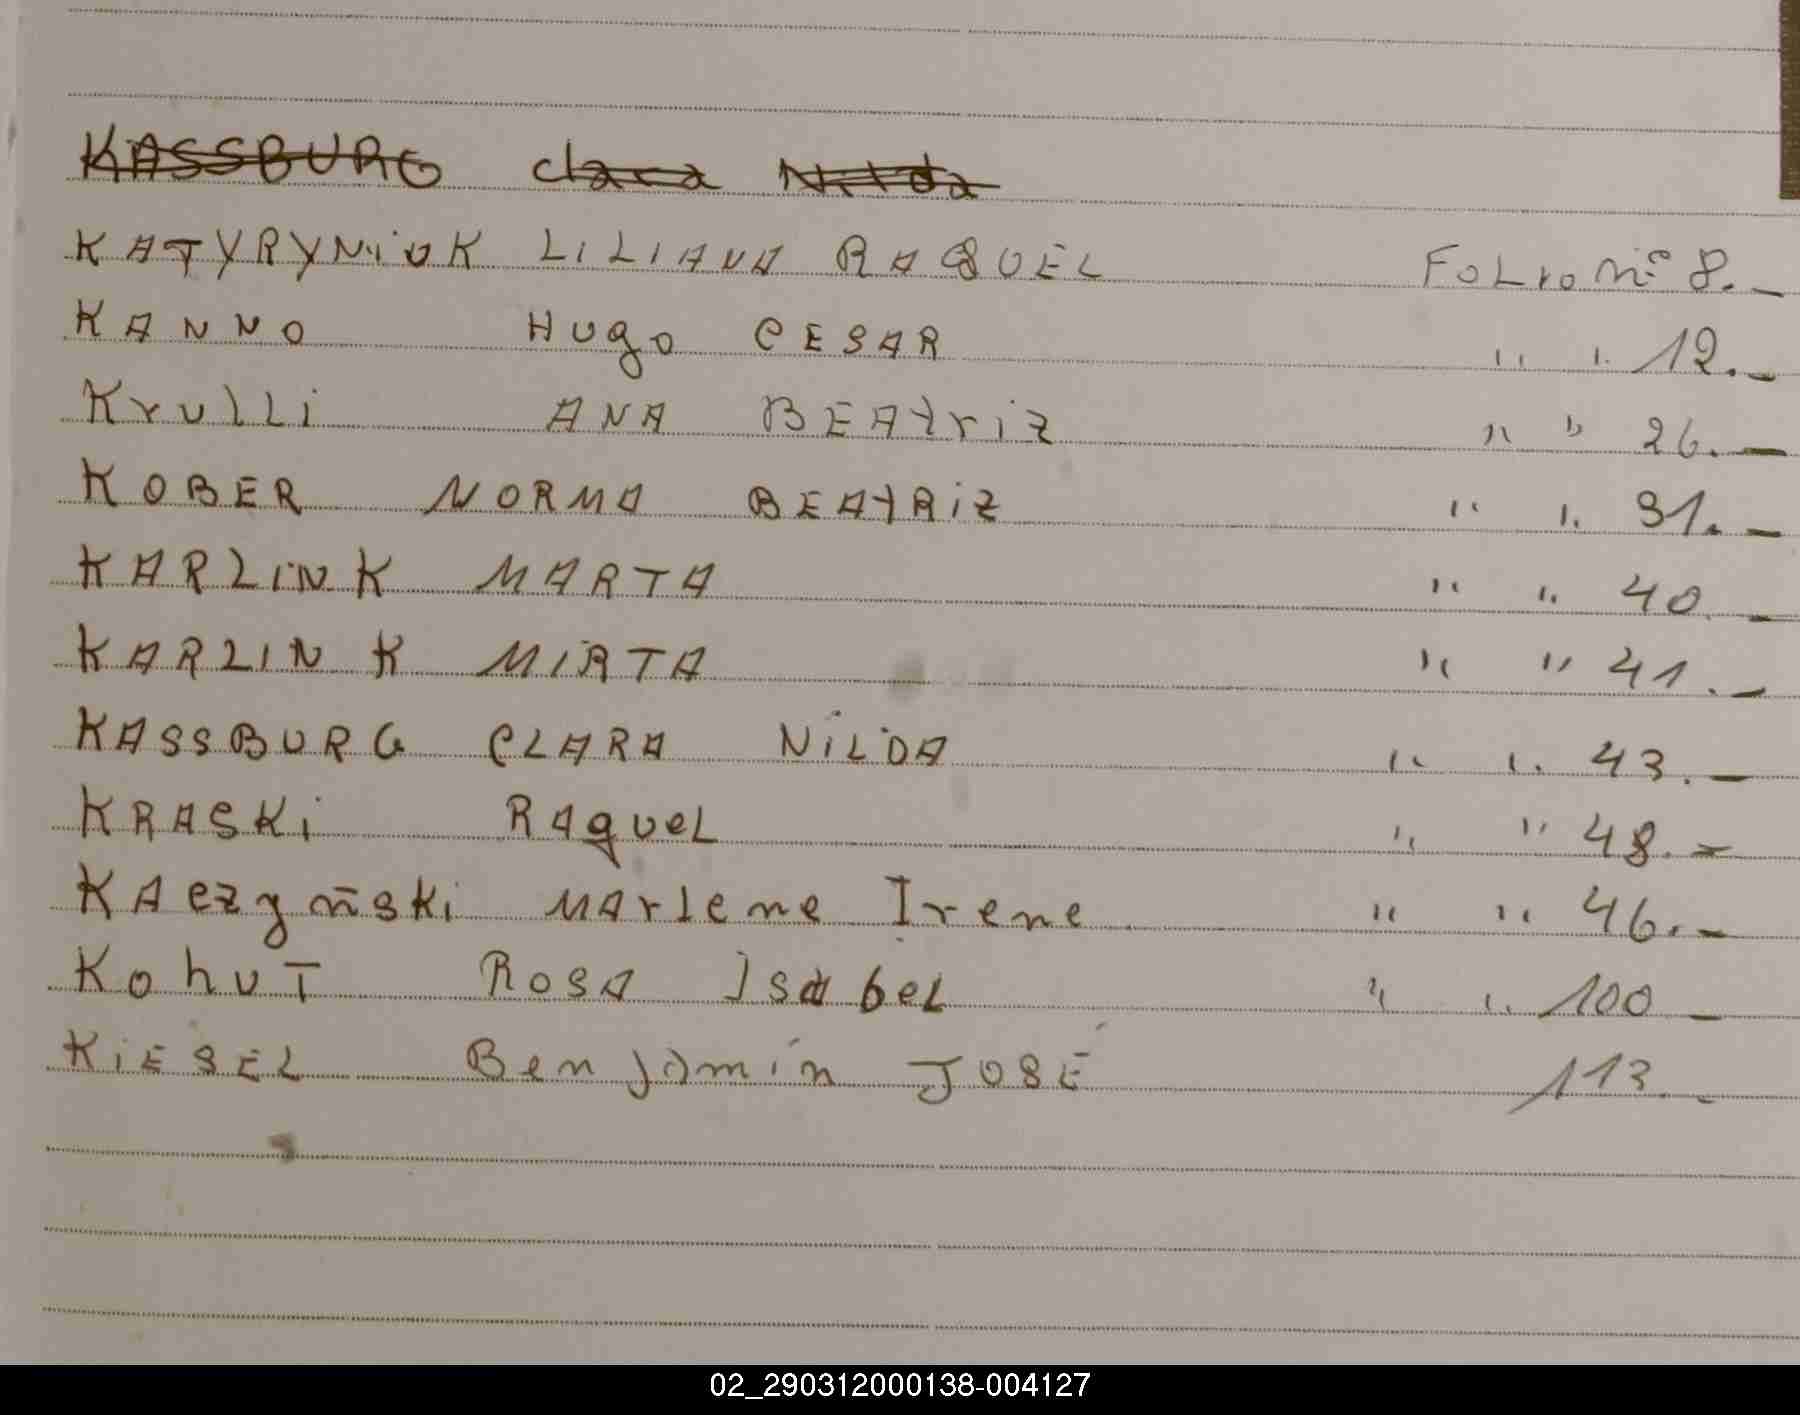 KASSBURG Clara Nilda
KATYRYNIUK LILIANA RAQUEL FOLIO Nº 8.-
KANNO HUgo CESAR " " 12.-
KrULLi ANA BEAtriz " " 26.-
KOBER NORMA BEAtRiZ " " 31.-
KARLINK MARTA " " 40.-
KARLINK MIRTA " " 41.-
KASSBURG CLARA NiLDA " " 43.-
KRASKi RAqueL " " 48.-
KAczyñski MArlene Irene " " 46.-
KohuT ROSA ISabeL " " 100.-
KiESEL Benjamín JOSÉ 113.-
02_290312000138-004127